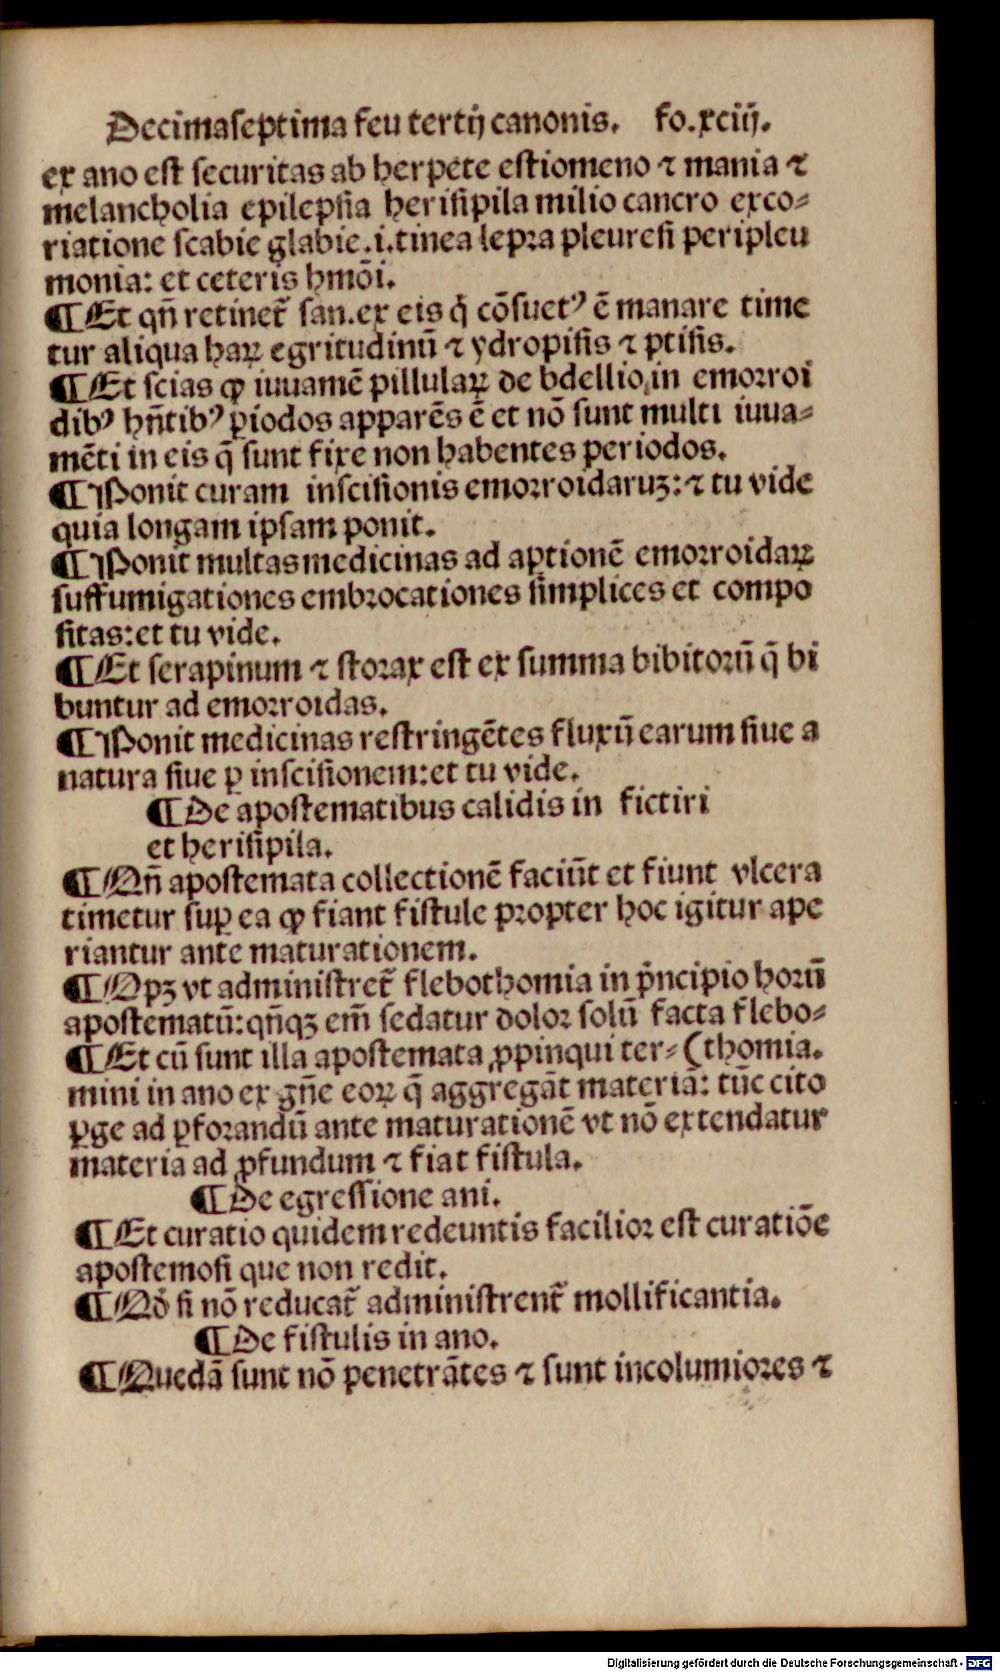 Decimaseptima feu tertij canonis. fo.xciij.
ex ano est securitas ab herpete estiomeno ⁊ mania ⁊
melancholia epilepsia herisipila milio cancro exco⸗
riatione scabie glabie.i.tinea lepꝛa pleuresi peripleu
monia: et ceteris hmōi.
¶Et qñ retinet᷑ san.ex eis q̇ cōsuetꝰ ē manare time
tur aliqua haꝝ egritudinū ⁊ ydropisis ⁊ ptisis.
¶Et scias ꝙ iuuamē pillulaꝝ de bdellio in emoꝛroi
dibꝰ hñtibꝰ ꝑiodos apparēs ē et nō sunt multi iuua⸗
mēti in eis q̄ sunt fixe non habentes periodos.
¶Ponit curam inscisionis emoꝛroidaruꝫ:⁊ tu vide
quia longam ipsam ponit.
¶Ponit multas medicinas ad aꝑtionē emoꝛroidaꝝ
suffumigationes embꝛocationes simplices et compo
sitas:et tu vide.
¶Et serapinum ⁊ stoꝛax est ex summa bibitoꝛū q̄ bi
buntur ad emoꝛroidas.
¶Ponit medicinas restringētes fluxū earum siue a
natura siue ꝑ inscisionem:et tu vide.
¶De apostematibus calidis in fictiri
et herisipila.
¶Qñ apostemata collectionē faciūt et fiunt vlcera
timetur suꝑ ea ꝙ fiant fistule pꝛopter hoc igitur ape
riantur ante maturationem.
¶Opꝫ vt administret᷑ flebothomia in pͥncipio hoꝛū
apostematū:qñqꝫ em̄ sedatur doloꝛ solū facta flebo⸗
¶Et cū sunt illa apostemata ꝓpinqui ter⸗ (thomia.
mini in ano ex gñe eoꝝ q̄ aggregāt materiā: tūc cito
ꝑge ad ꝑfoꝛandū ante maturationē vt nō extendatur
materia ad ꝓfundum ⁊ fiat fistula.
¶De egressione ani.
¶Et curatio quidem redeuntis facilioꝛ est curatiōe
apostemosi que non redit.
¶Qđ si nō reducat᷑ administrent᷑ mollificantia.
¶De fistulis in ano.
¶Quedā sunt nō penetrātes ⁊ sunt incolumioꝛes ⁊
Digitalisierung gefördert durch die Deutsche Forschungsgemeinschaft - DFG